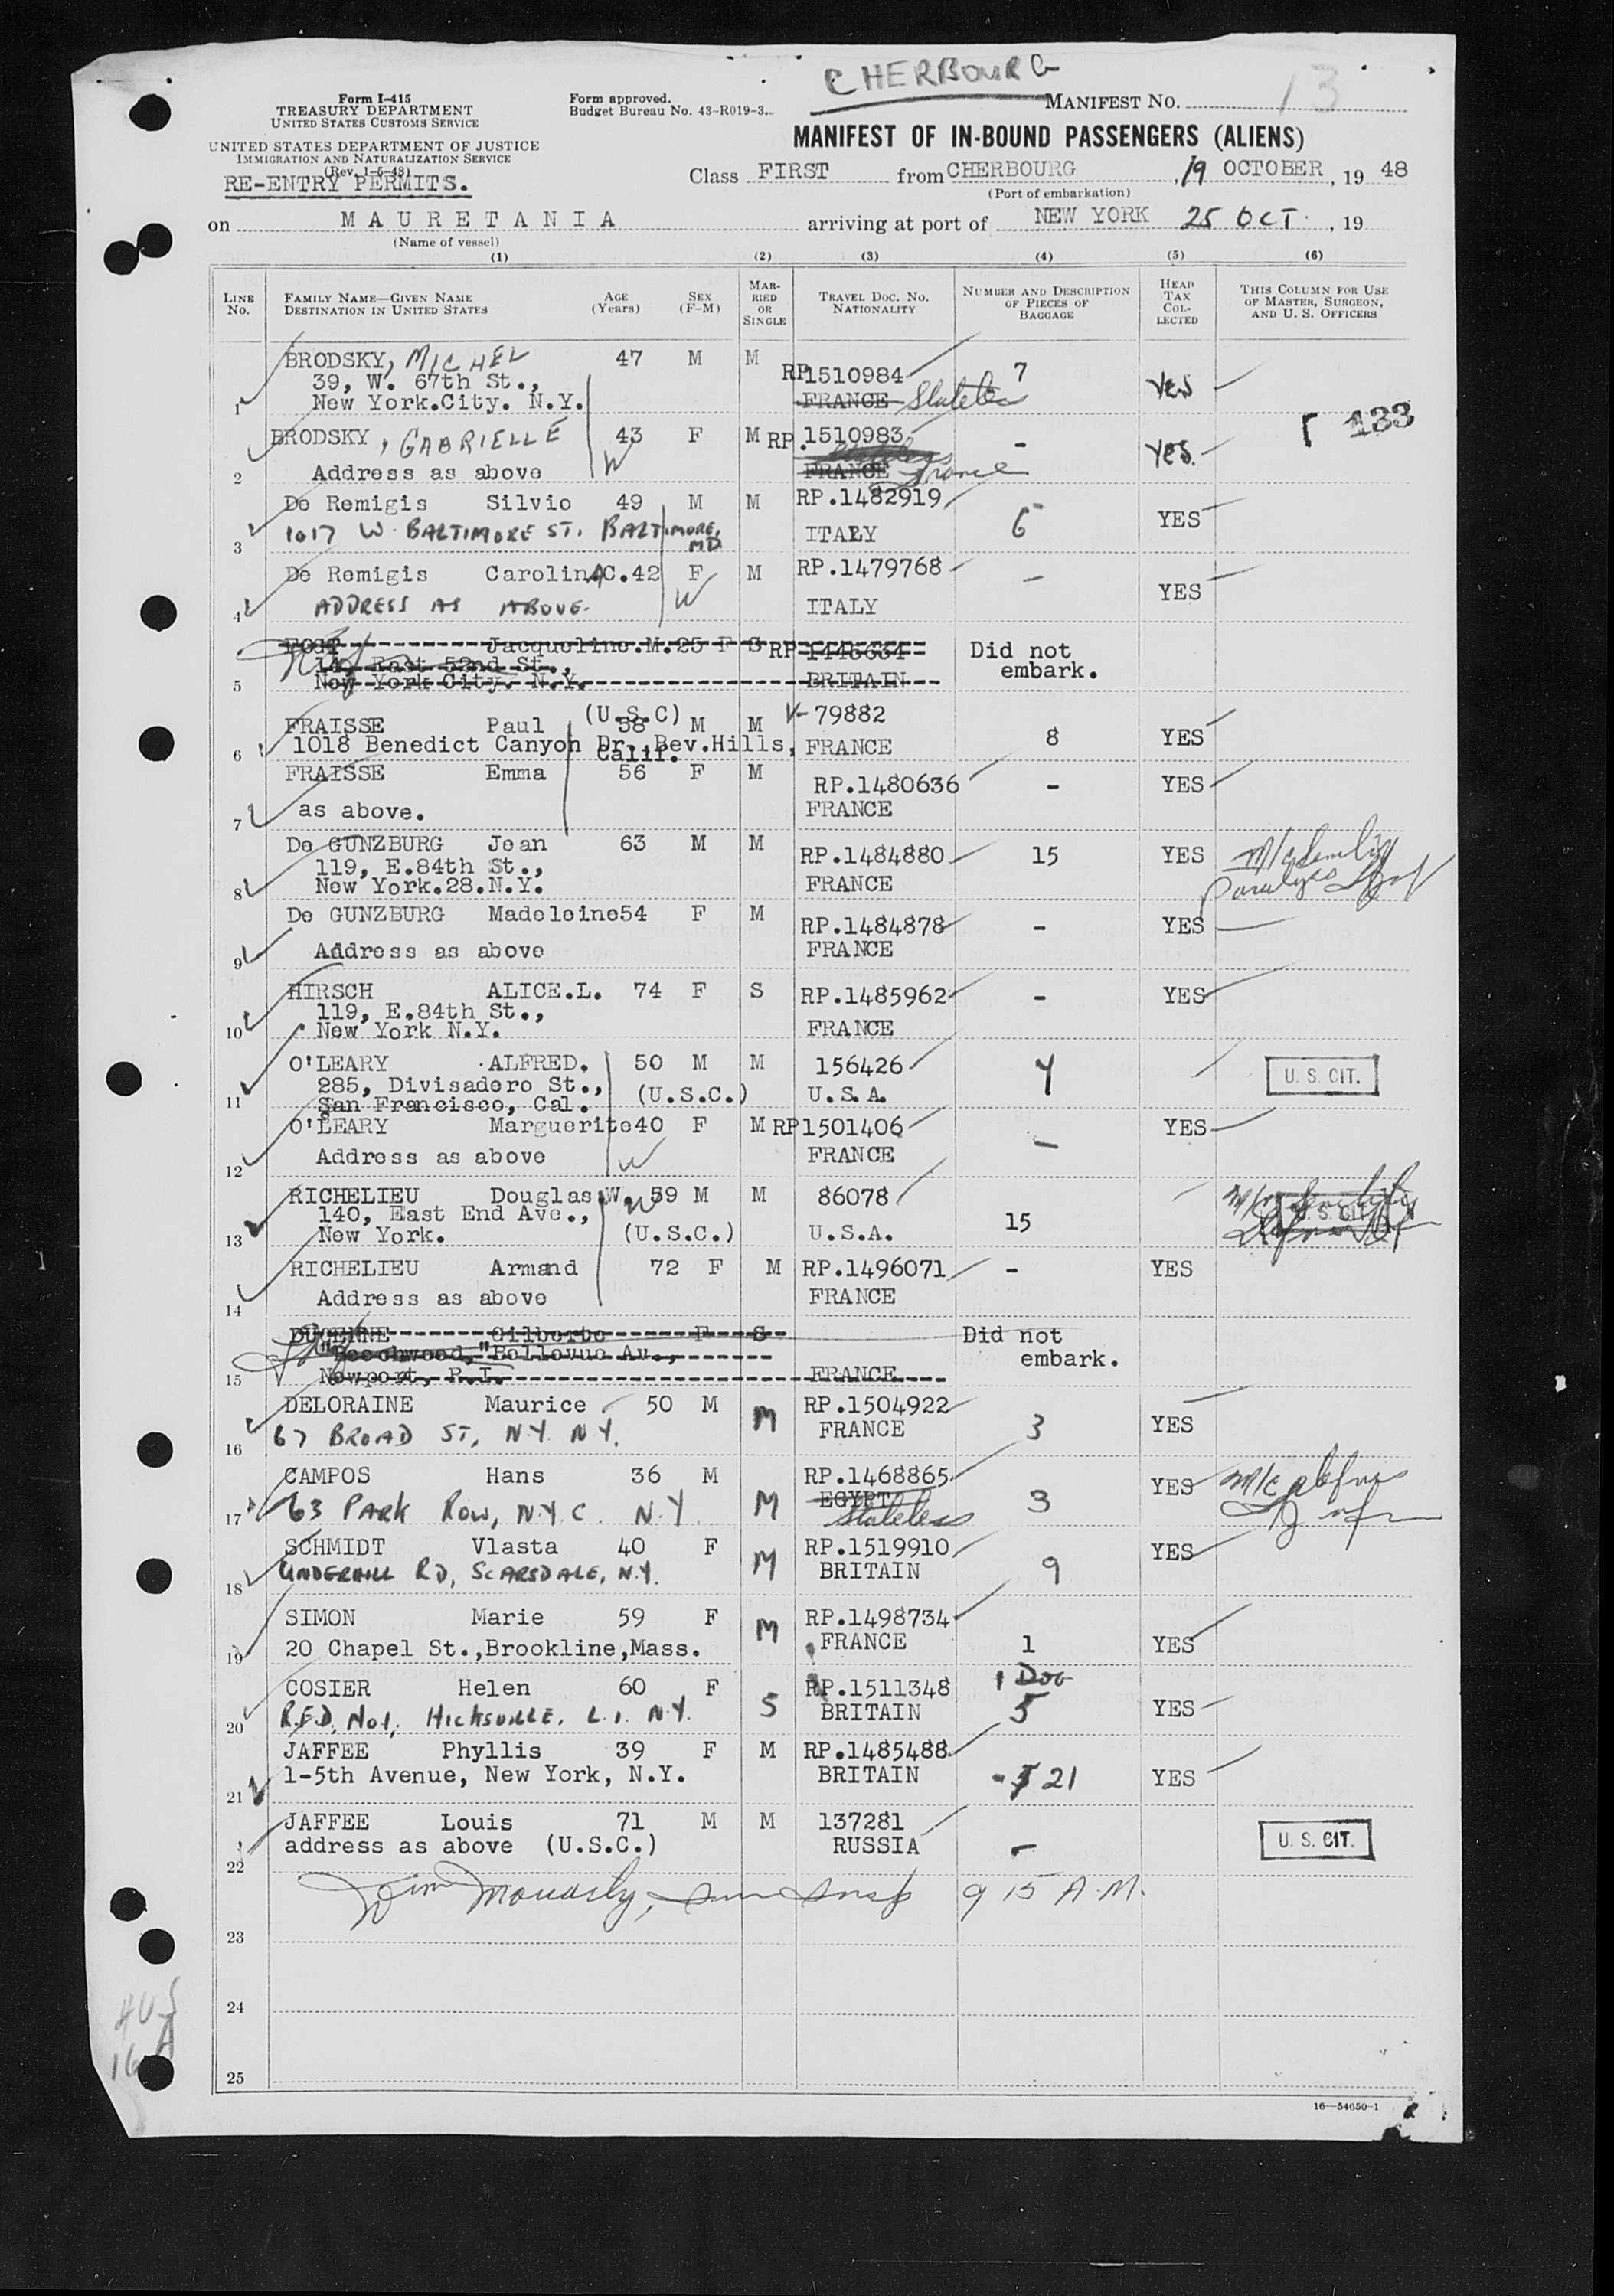 CHERBOURG
Form I-415
TREASURY DEPARTMENT
UNITED STATES CUSTOMS SERVICE
UNITED STATES DEPARTMENT OF JUSTICE
IMMIGRATION AND NATURALIZATION SERVICE
(Rev. 1-5-48)
RE-ENTRY PERMITS.
Form approved.
Budget Bureau No. 43-R019-3.
MANIFEST NO. 13
MANIFEST OF IN-BOUND PASSENGERS (ALIENS)
Class FIRST from CHERBOURG, 19 OCTOBER, 19 48
(Port of embarkation)
on MAURETANIA arriving at port of NEW YORK 25 OCT., 19
(Name of vessel)
(1) (2) (3) (4) (5) (6)
LINE No. FAMILY NAME—GIVEN NAME DESTINATION IN UNITED STATES AGE (Years) SEX (F-M) MARRIED OR SINGLE TRAVEL DOC. NO. NATIONALITY NUMBER AND DESCRIPTION OF PIECES OF BAGGAGE HEAD TAX COLLECTED THIS COLUMN FOR USE OF MASTER, SURGEON, AND U. S. OFFICERS
BRODSKY, MICHEL 47 M M RP1510984 7 Yes
39, W. 67th St., FRANCE Stateless
1 New York.City. N.Y.
133
BRODSKY, GABRIELLE 43 F M RP.1510983 - Yes.
2 Address as above W FRANCE France
De Remigis Silvio 49 M M RP.1482919 6 YES
3 1017 W. BALTIMORE ST. BALTIMORE, MD ITALY
De Remigis Carolina C. 42 F M RP.1479768 - YES
4 ADDRESS AS ABOVE. W ITALY
Jacqueline.M. 25 F S RP Did not
East 52nd St., embark.
5 New York City. N.Y. BRITAIN
FRAISSE Paul (U.S.C) 58 M M V-79882 8 YES
6 1018 Benedict Canyon Dr. Bev.Hills, Calif. FRANCE
FRAISSE Emma 56 F M RP.1480636 - YES
7 as above. FRANCE
De GUNZBURG Jean 63 M M RP.1484880 15 YES
119, E.84th St., FRANCE
8 New York.28.N.Y.
De GUNZBURG Madeleine 54 F M RP.1484878 - YES
9 Address as above FRANCE
HIRSCH ALICE.L. 74 F S RP.1485962 - YES
119, E.84th St.,
10 New York N.Y. FRANCE
O'LEARY ALFRED. 50 M M 156426 4 U. S. CIT.
285, Divisadero St., (U.S.C.) U.S.A.
11 San Francisco, Cal.
O'LEARY Marguerite 40 F M RP1501406 - YES
12 Address as above W FRANCE
RICHELIEU Douglas.W. 59 M M 86078 15
140, East End Ave.,
13 New York. (U.S.C.) U.S.A.
RICHELIEU Armand 72 F M RP.1496071 - YES
14 Address as above FRANCE
Gilberte F S Did not
"Beechwood," Bellevue Av., embark.
15 Newport, R.I. FRANCE
DELORAINE Maurice 50 M M RP.1504922 3 YES
16 67 BROAD ST, N.Y. N.Y. FRANCE
CAMPOS Hans 36 M M RP.1468865 3 YES
17 63 PARK ROW, N.Y.C. N.Y. EGYPT Stateless
SCHMIDT Vlasta 40 F M RP.1519910 9 YES
18 UNDERHILL RD, SCARSDALE, N.Y. BRITAIN
SIMON Marie 59 F M RP.1498734 1 YES
19 20 Chapel St., Brookline, Mass. FRANCE
COSIER Helen 60 F S RP.1511348 1 DOG 5 YES
20 R.F.D. No1, HICKSVILLE, L.I. N.Y. BRITAIN
JAFFEE Phyllis 39 F M RP.1485488 21 YES
21 1-5th Avenue, New York, N.Y. BRITAIN
JAFFEE Louis 71 M M 137281 - U. S. CIT.
22 address as above (U.S.C.) RUSSIA
9 15 A.M.
23
24
25
16—54650-1